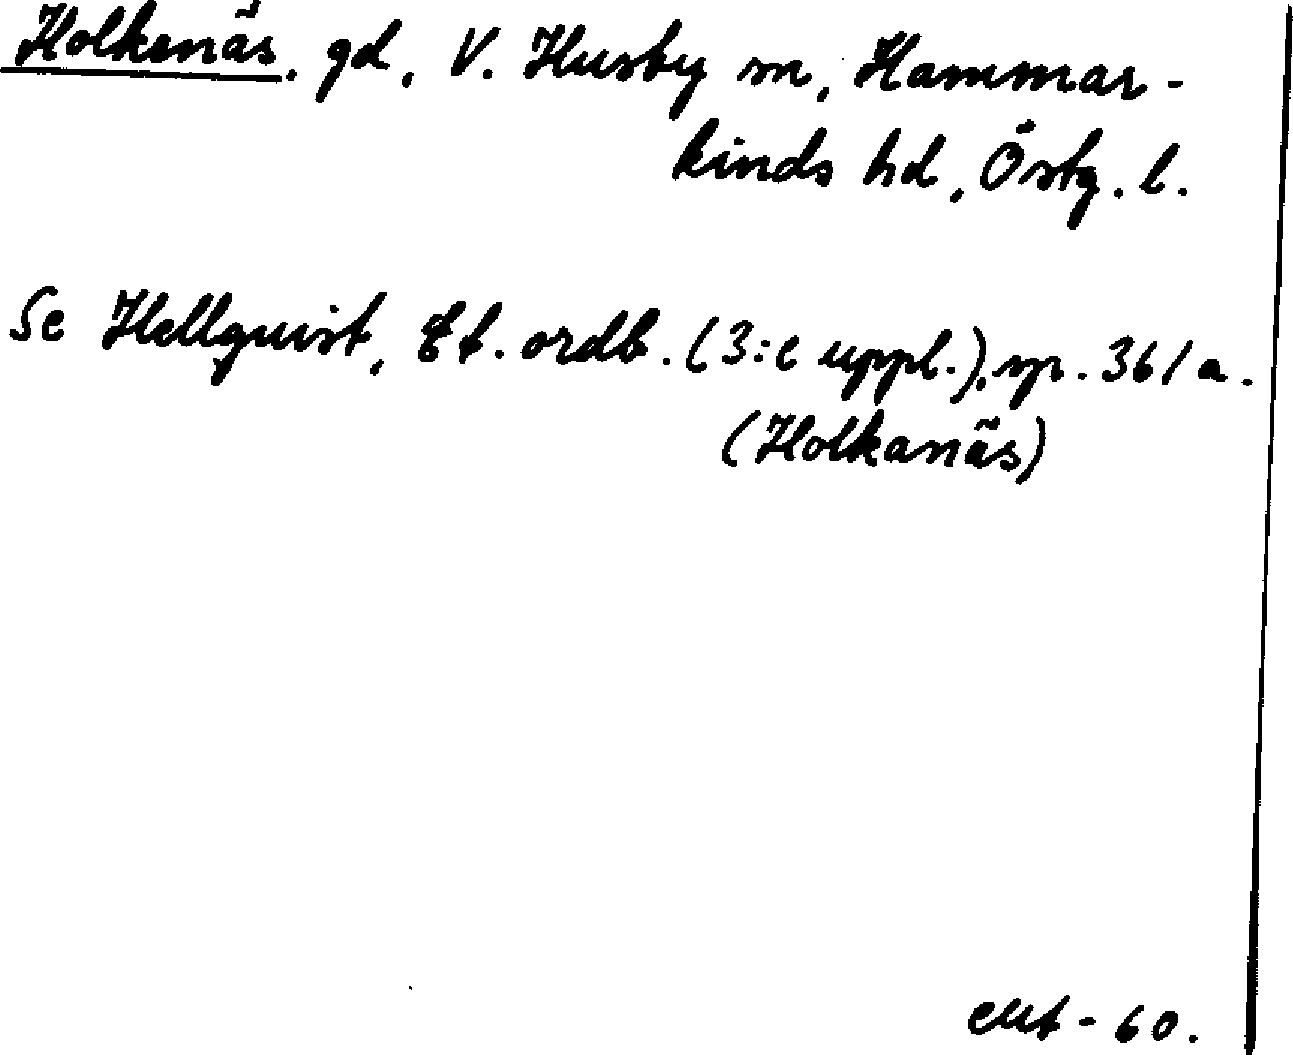 Holkenäs. gd, V. Husby sn, Hammar-
kinds hd, Östg. l.
Se Hellquist, Et. ordb. (3:e uppl.), sp. 361 a.
(Holkanäs)
-60.